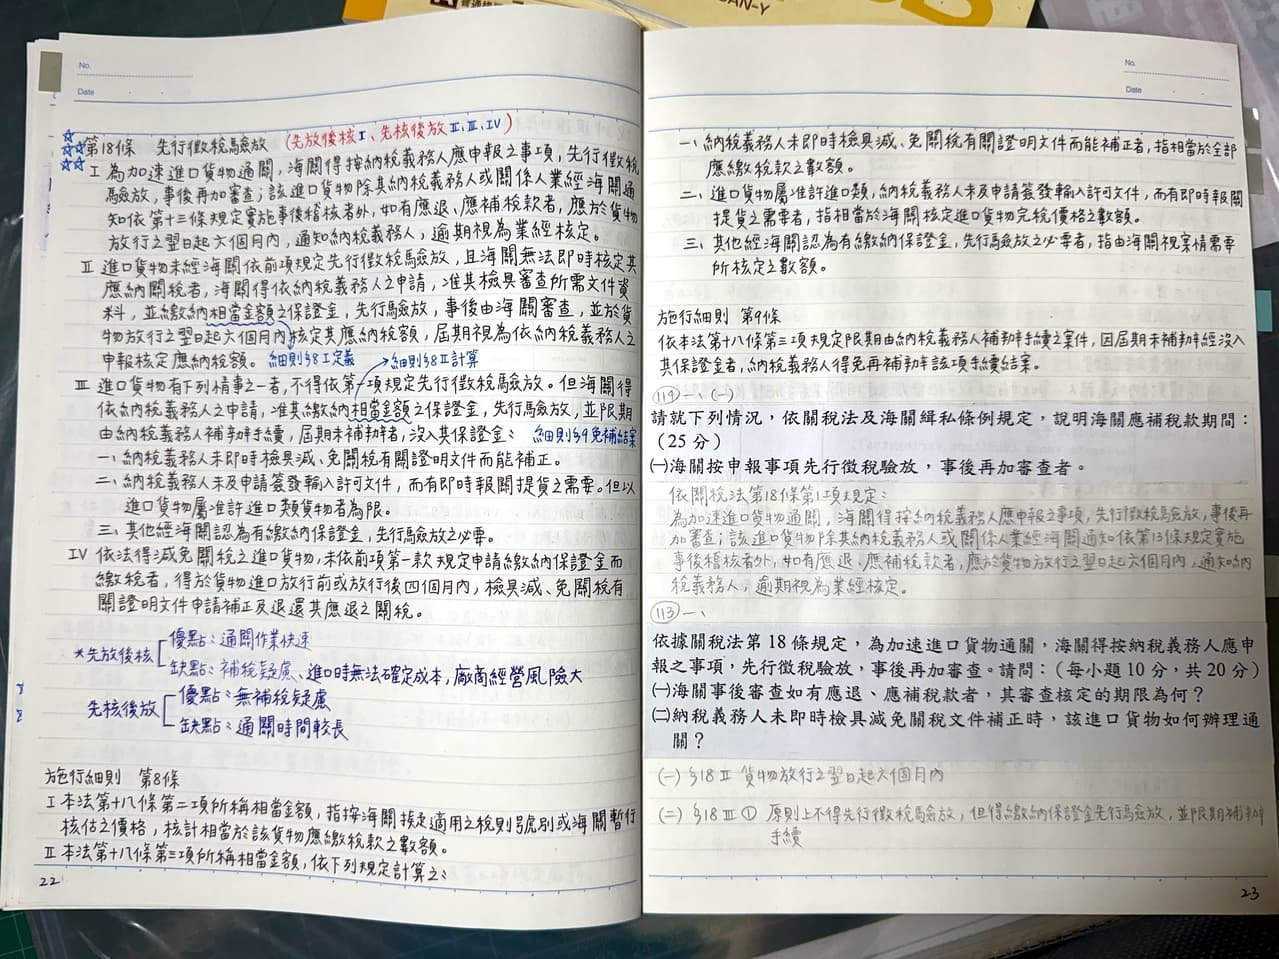 普通
AN-Y
No.
Date
第18條 先行徵稅驗放 (先放後核I、先核後放II、III、IV)
I 為加速進口貨物通關，海關得按納稅義務人應申報之事項，先行徵稅
驗放，事後再加審查；該進口貨物除其納稅義務人或關係人業經海關通
知依第十三條規定實施事後稽核者外，如有應退、應補稅款者，應於貨物
放行之翌日起六個月內，通知納稅義務人，逾期視為業經核定。
II 進口貨物未經海關依前項規定先行徵稅驗放，且海關無法即時核定其
應納關稅者，海關得依納稅義務人之申請，准其檢具審查所需文件資
料，並繳納相當金額之保證金，先行驗放，事後由海關審查，並於貨
物放行之翌日起六個月內核定其應納稅額，屆期視為依納稅義務人之
申報核定應納稅額。 細則§8 I 定義 細則§8 II 計算
III 進口貨物有下列情事之一者，不得依第一項規定先行徵稅驗放。但海關得
依納稅義務人之申請，准其繳納相當金額之保證金，先行驗放，並限期
由納稅義務人補辦手續，屆期未補辦者，沒入其保證金： 細則§9免補結案
一、納稅義務人未即時檢具減、免關稅有關證明文件而能補正。
二、納稅義務人未及申請簽發輸入許可文件，而有即時報關提貨之需要。但以
進口貨物屬准許進口類貨物者為限。
三、其他經海關認為有繳納保證金，先行驗放之必要。
IV 依法得減免關稅之進口貨物，未依前項第一款規定申請繳納保證金而
繳稅者，得於貨物進口放行前或放行後四個月內，檢具減、免關稅有
關證明文件申請補正及退還其應退之關稅。
*先放後核 優點：通關作業快速
缺點：補稅疑慮、進口時無法確定成本，廠商經營風險大
先核後放 優點：無補稅疑慮
缺點：通關時間較長
施行細則 第8條
I 本法第十八條第二項所稱相當金額，指按海關核定適用之稅則號別或海關暫行
核估之價格，核計相當於該貨物應繳稅款之數額。
II 本法第十八條第三項所稱相當金額，依下列規定計算之：
22
No.
Date
一、納稅義務人未即時檢具減、免關稅有關證明文件而能補正者，指相當於全部
應繳稅款之數額。
二、進口貨物屬准許進口類，納稅義務人未及申請簽發輸入許可文件，而有即時報關
提貨之需要者，指相當於海關核定進口貨物完稅價格之數額。
三、其他經海關認為有繳納保證金，先行驗放之必要者，指由海關視案情需要
所核定之數額。
施行細則 第9條
依本法第十八條第三項規定限期由納稅義務人補辦手續之案件，因屆期未補辦經沒入
其保證金者，納稅義務人得免再補辦該項手續結案。
119 一、(一)
請就下列情況，依關稅法及海關緝私條例規定，說明海關應補稅款期間：
（25 分）
㈠海關按申報事項先行徵稅驗放，事後再加審查者。
依關稅法第18條第1項規定：
為加速進口貨物通關，海關得按納稅義務人應申報之事項，先行徵稅驗放，事後再
加審查；該進口貨物除其納稅義務人或關係人業經海關通知依第13條規定實施
事後稽核者外，如有應退、應補稅款者，應於貨物放行之翌日起六個月內，通知納
稅義務人，逾期視為業經核定。
113 一、
依據關稅法第 18 條規定，為加速進口貨物通關，海關得按納稅義務人應申
報之事項，先行徵稅驗放，事後再加審查。請問：（每小題 10 分，共 20 分）
㈠海關事後審查如有應退、應補稅款者，其審查核定的期限為何？
㈡納稅義務人未即時檢具減免關稅文件補正時，該進口貨物如何辦理通
關？
(一) §18 II 貨物放行之翌日起六個月內
(二) §18 III ① 原則上不得先行徵稅驗放，但得繳納保證金先行驗放，並限期補辦
手續
23